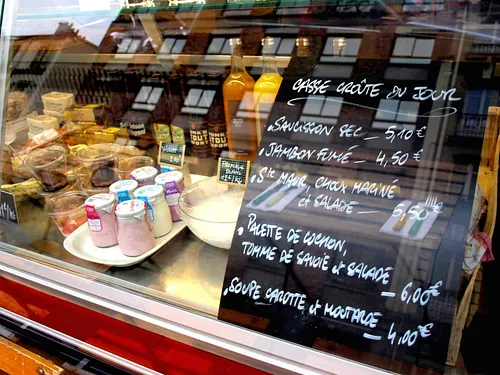 CASSE CROÛTE DU JOUR
. SAUCISSON SEC _ 5,10 €
. JAMBON FUMÉ _ 4,50 €
. Ste MAUR, CHOUX MARINÉ
et SALADE _ 5,50€
. PALETTE DE COCHON,
TOMME DE SAVOIE et SALADE
_ 6,00€
. SOUPE CAROTTE et MOUTARDE
_ 4,00€
FROMAGE
BLANC